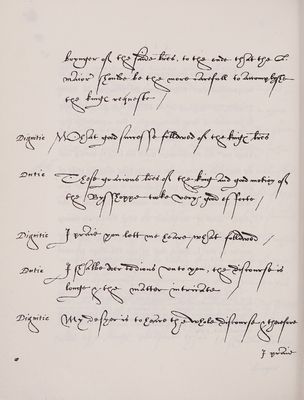 bringer of the saide lres, to the ende that the L.
maior shoulde be the more carefull to accomplishe
the kings requeste /
Dignitie What good successe followed of the kings lres
Dutie These gracious lres of the king and good motion of
the Bysshoppe tooke very good effecte /
Dignitie I praie you lett me heare what followed /
Dutie I shalbe over tedious unto you, the discourse is
longe & the matter intricate /
Dignitie My desyer is to heare the whole discourse & therefore
I praie